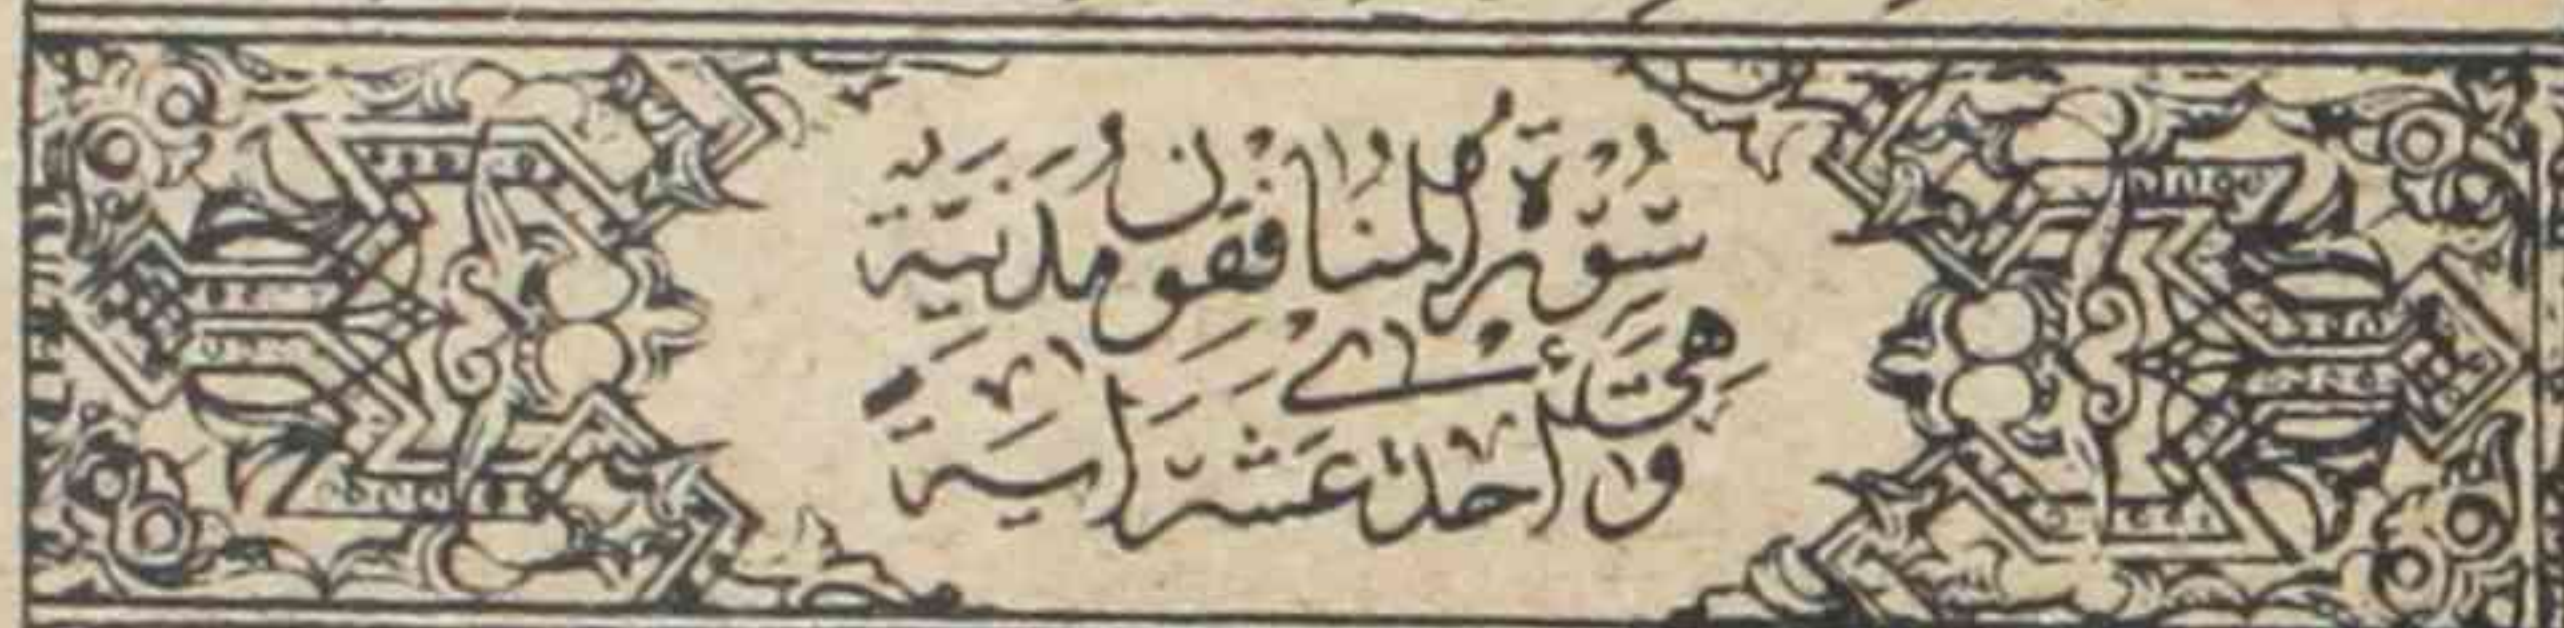 سُوْرَةُ الْمُنَافِقُوْنَ مَدَنِيَّةٌ
وَهِيَ احدى عَشَرَ ايَةً